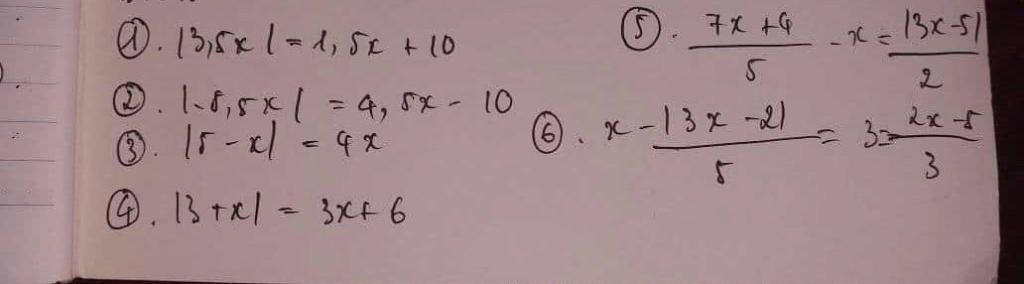 ①. |3,5x| = 1,5x + 10
②. |-5,5x| = 4,5x - 10
③. |5 - x| = 4x
④. |3 + x| = 3x + 6
⑤. (7x + 4)/5 - x = |3x - 5|/2
⑥. x - |3x - 2|/5 = 3 - (2x - 5)/3